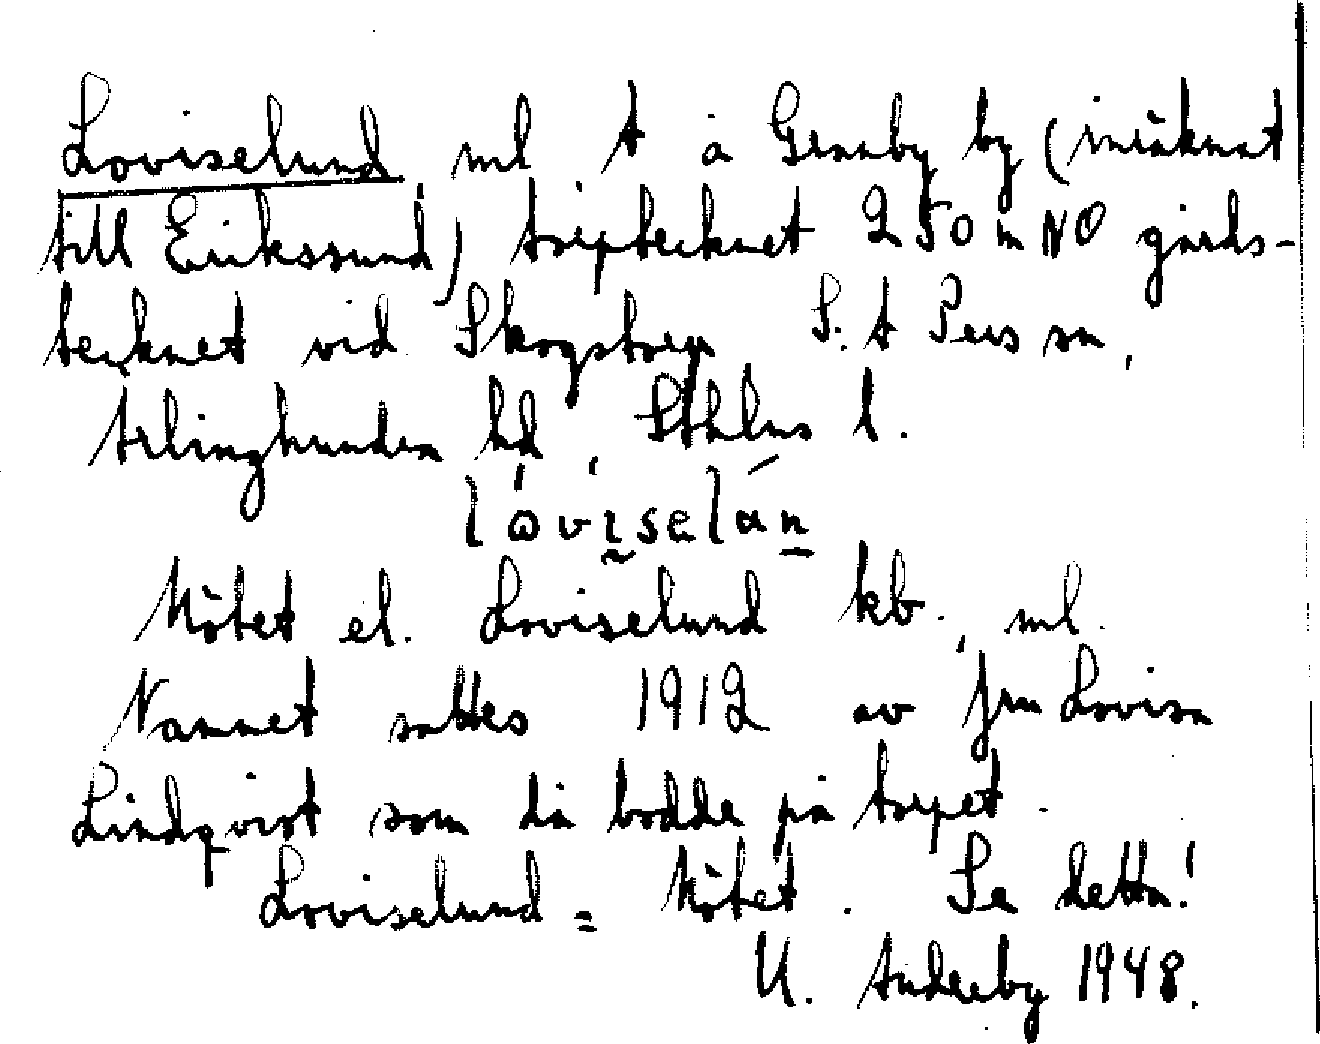 Loviselund ml t å Granby by (inräknat
till Erikssund) torptecknet 250 m NO gårds-
tecknet vid Skogstorp S:t Pers sn,
Ärlinghundra hd, Sthlms l.
Mötet el. Loviselund kb., ml.
Namnet sattes 1912 av fru Lovisa
Lindqvist som då bodde på torpet.
Loviselund = Mötet. Se detta!
U. 1948.